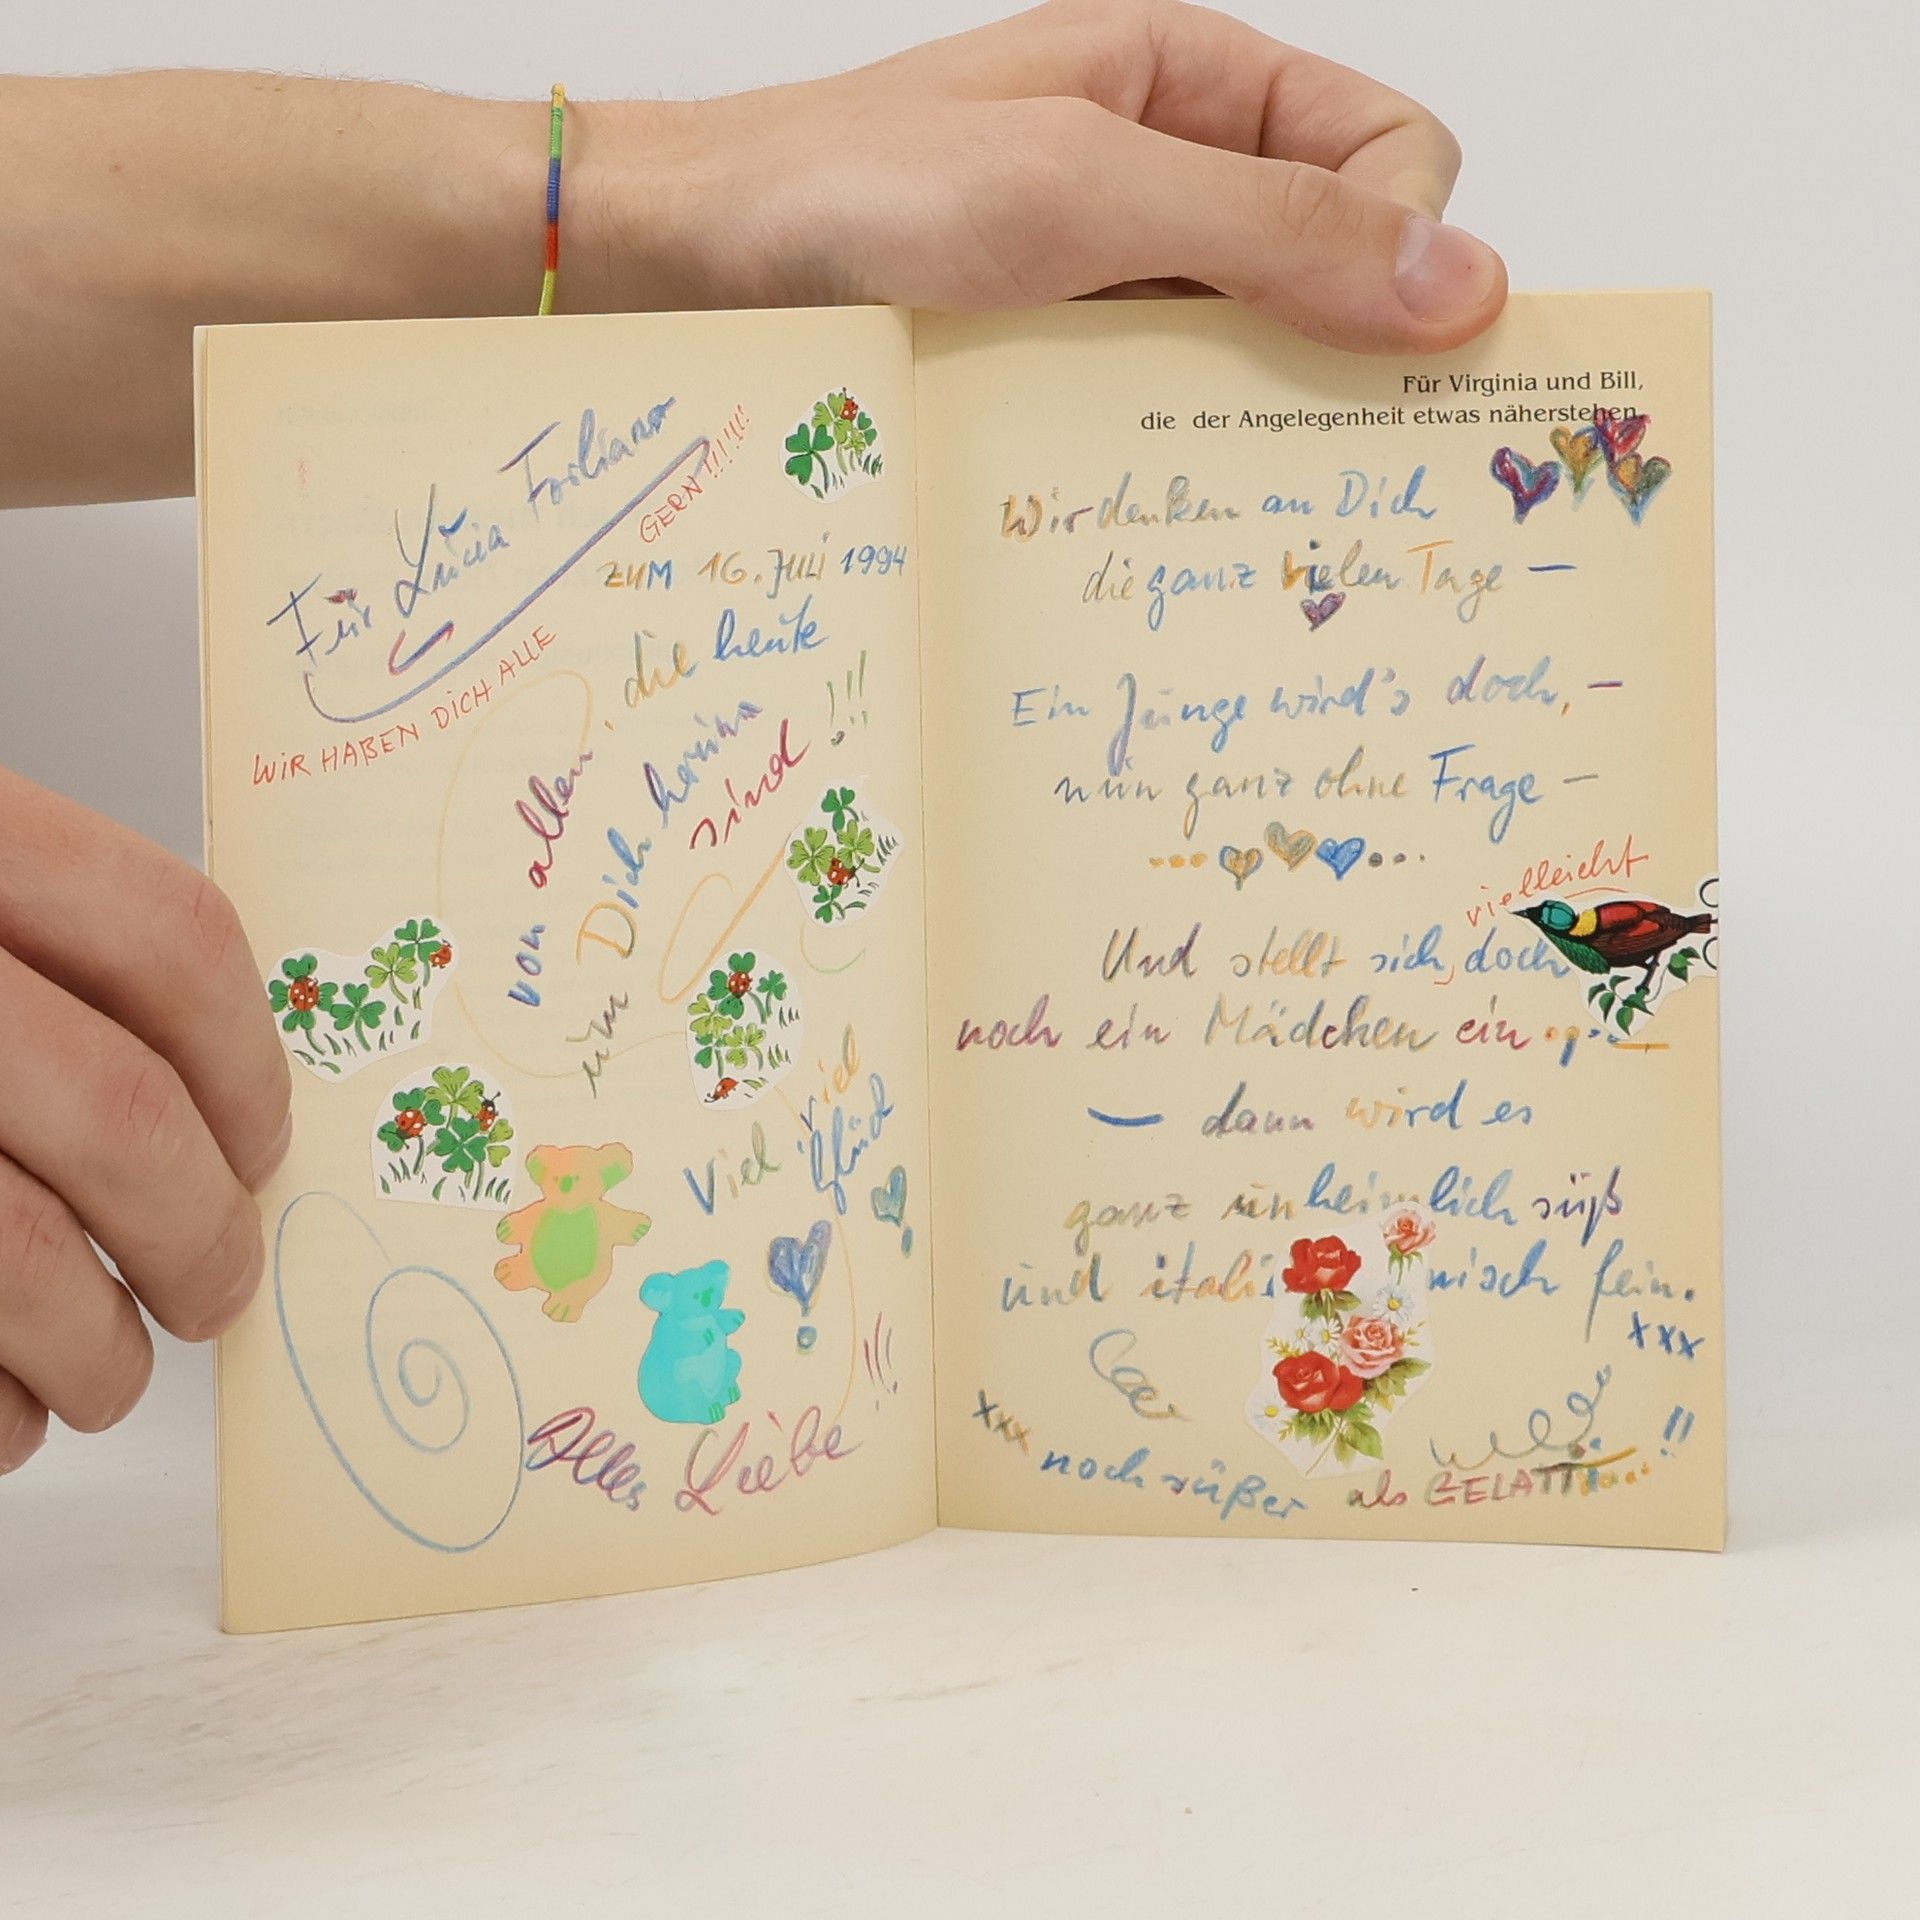 Für Lucia
GERN!!!!!!!
ZUM 16. JULI 1994
WIR HABEN DICH ALLE
von allen, die heute
um Dich herum
sind !!!
Viel, viel
Glück
Alles Liebe !!!
Für Virginia und Bill,
die der Angelegenheit etwas näherstehen.
Wir denken an Dich
die ganz vielen Tage –
Ein Junge wird's doch, –
nun ganz ohne Frage –
vielleicht
Und stellt sich, doch
noch ein Mädchen ein
– dann wird es
ganz unheimlich süß
und itali nisch fein.
xxx
xxx
noch süßer als GELATTI !!